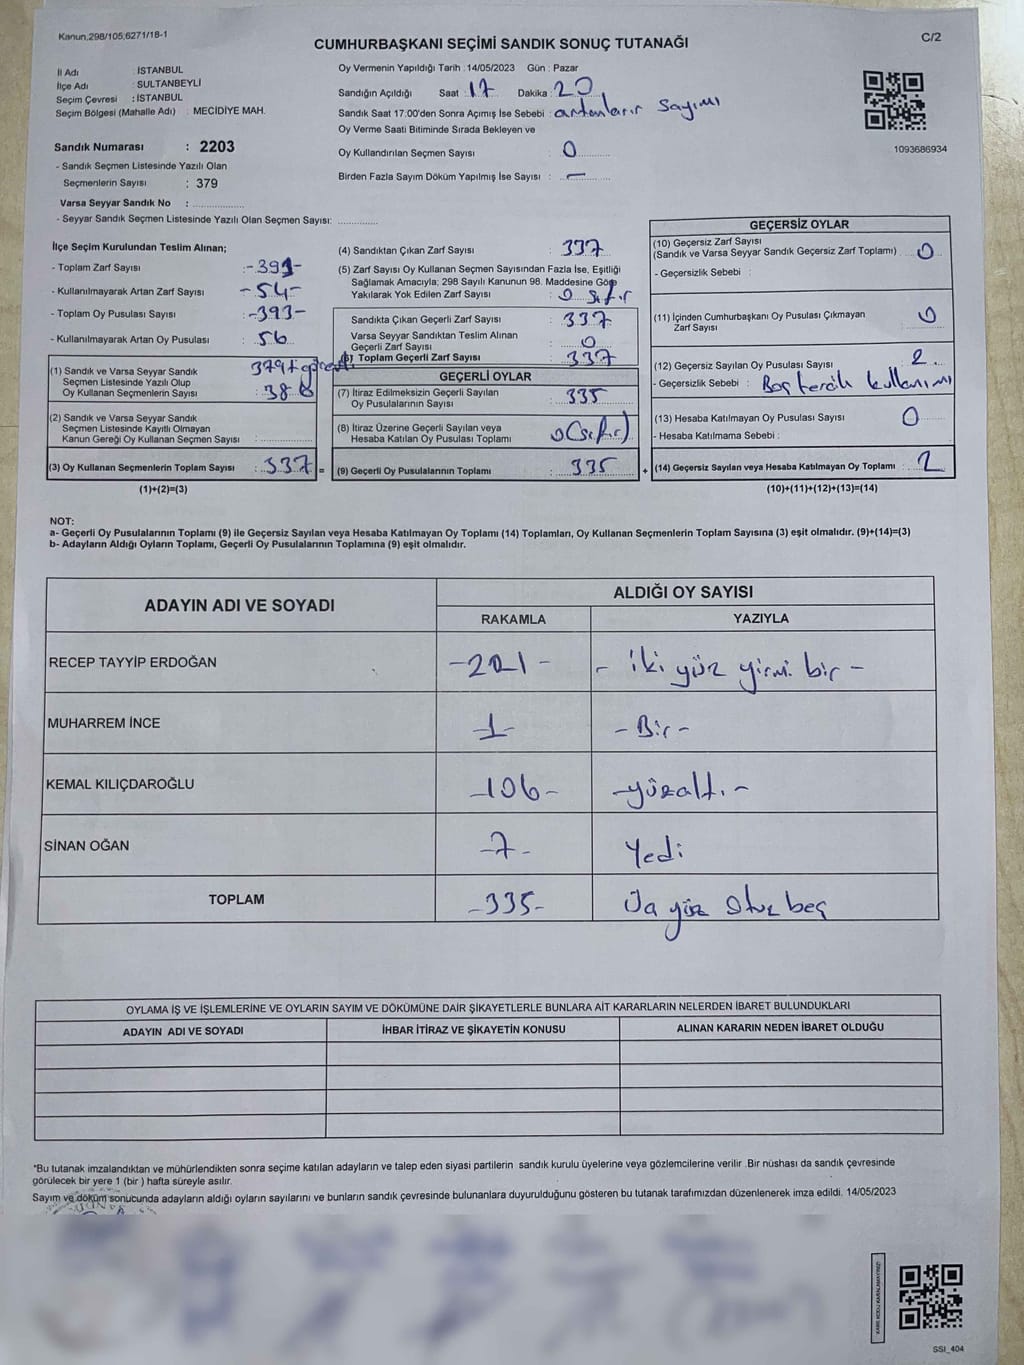 Kanun,298/105,6271/18-1
C/2
CUMHURBAŞKANI SEÇİMİ SANDIK SONUÇ TUTANAĞI
İl Adı : İSTANBUL
İlçe Adı : SULTANBEYLİ
Seçim Çevresi : İSTANBUL
Seçim Bölgesi (Mahalle Adı) : MECİDİYE MAH.
Sandık Numarası : 2203
- Sandık Seçmen Listesinde Yazılı Olan
Seçmenlerin Sayısı : 379
Varsa Seyyar Sandık No :
- Seyyar Sandık Seçmen Listesinde Yazılı Olan Seçmen Sayısı:
Oy Vermenin Yapıldığı Tarih :14/05/2023 Gün : Pazar
Sandığın Açıldığı Saat : 17 Dakika : 20
Sandık Saat 17.00'den Sonra Açımış İse Sebebi : artanların sayımı
Oy Verme Saati Bitiminde Sırada Bekleyen ve
Oy Kullandırılan Seçmen Sayısı : 0
Birden Fazla Sayım Döküm Yapılmış İse Sayısı : —
1093686934
İlçe Seçim Kurulundan Teslim Alınan;
- Toplam Zarf Sayısı :-391-
- Kullanılmayarak Artan Zarf Sayısı -54-
- Toplam Oy Pusulası Sayısı :-393-
- Kullanılmayarak Artan Oy Pusulası : 56
(1) Sandık ve Varsa Seyyar Sandık
Seçmen Listesinde Yazılı Olup
Oy Kullanan Seçmenlerin Sayısı :
(2) Sandık ve Varsa Seyyar Sandık
Seçmen Listesinde Kayıtlı Olmayan
Kanun Gereği Oy Kullanan Seçmen Sayısı :
(3) Oy Kullanan Seçmenlerin Toplam Sayısı : 337 =
(1)+(2)=(3)
(4) Sandıktan Çıkan Zarf Sayısı : 337
(5) Zarf Sayısı Oy Kullanan Seçmen Sayısından Fazla İse, Eşitliği
Sağlamak Amacıyla; 298 Sayılı Kanunun 98. Maddesine Göre
Yakılarak Yok Edilen Zarf Sayısı : 0 sıfır
Sandıkta Çıkan Geçerli Zarf Sayısı : 337
Varsa Seyyar Sandıktan Teslim Alınan
Geçerli Zarf Sayısı : 0
(6) Toplam Geçerli Zarf Sayısı : 337
GEÇERLİ OYLAR
(7) İtiraz Edilmeksizin Geçerli Sayılan
Oy Pusulalarının Sayısı : 335
(8) İtiraz Üzerine Geçerli Sayılan veya
Hesaba Katılan Oy Pusulası Toplamı : 0(sıfır)
(9) Geçerli Oy Pusulalarının Toplamı : 335 +
GEÇERSİZ OYLAR
(10) Geçersiz Zarf Sayısı
(Sandık ve Varsa Seyyar Sandık Geçersiz Zarf Toplamı) 0
- Geçersizlik Sebebi :
(11) İçinden Cumhurbaşkanı Oy Pusulası Çıkmayan
Zarf Sayısı : 0
(12) Geçersiz Sayılan Oy Pusulası Sayısı : 2
- Geçersizlik Sebebi : Boş tercih kullanımı
(13) Hesaba Katılmayan Oy Pusulası Sayısı : 0
- Hesaba Katılmama Sebebi :
(14) Geçersiz Sayılan veya Hesaba Katılmayan Oy Toplamı : 2
(10)+(11)+(12)+(13)=(14)
NOT:
a- Geçerli Oy Pusulalarının Toplamı (9) ile Geçersiz Sayılan veya Hesaba Katılmayan Oy Toplamı (14) Toplamları, Oy Kullanan Seçmenlerin Toplam Sayısına (3) eşit olmalıdır. (9)+(14)=(3)
b- Adayların Aldığı Oyların Toplamı, Geçerli Oy Pusulalarının Toplamına (9) eşit olmalıdır.
ADAYIN ADI VE SOYADI
ALDIĞI OY SAYISI
RAKAMLA YAZIYLA
RECEP TAYYİP ERDOĞAN -221- - iki yüz yirmi bir -
MUHARREM İNCE -1- - Bir -
KEMAL KILIÇDAROĞLU -106- -yüzaltı-
SİNAN OĞAN -7- Yedi
TOPLAM -335- yüz otuz beş
OYLAMA İŞ VE İŞLEMLERİNE VE OYLARIN SAYIM VE DÖKÜMÜNE DAİR ŞİKAYETLERLE BUNLARA AİT KARARLARIN NELERDEN İBARET BULUNDUKLARI
ADAYIN ADI VE SOYADI İHBAR İTİRAZ VE ŞİKAYETİN KONUSU ALINAN KARARIN NEDEN İBARET OLDUĞU
*Bu tutanak imzalandıktan ve mühürlendikten sonra seçime katılan adayların ve talep eden siyasi partilerin sandık kurulu üyelerine veya gözlemcilerine verilir .Bir nüshası da sandık çevresinde
görülecek bir yere 1 (bir ) hafta süreyle asılır.
Sayım ve döküm sonucunda adayların aldığı oyların sayılarını ve bunların sandık çevresinde bulunanlara duyurulduğunu gösteren bu tutanak tarafımızdan düzenlenerek imza edildi. 14/05/2023
KARE KODU KARALAMAYINIZ!
SSI_404